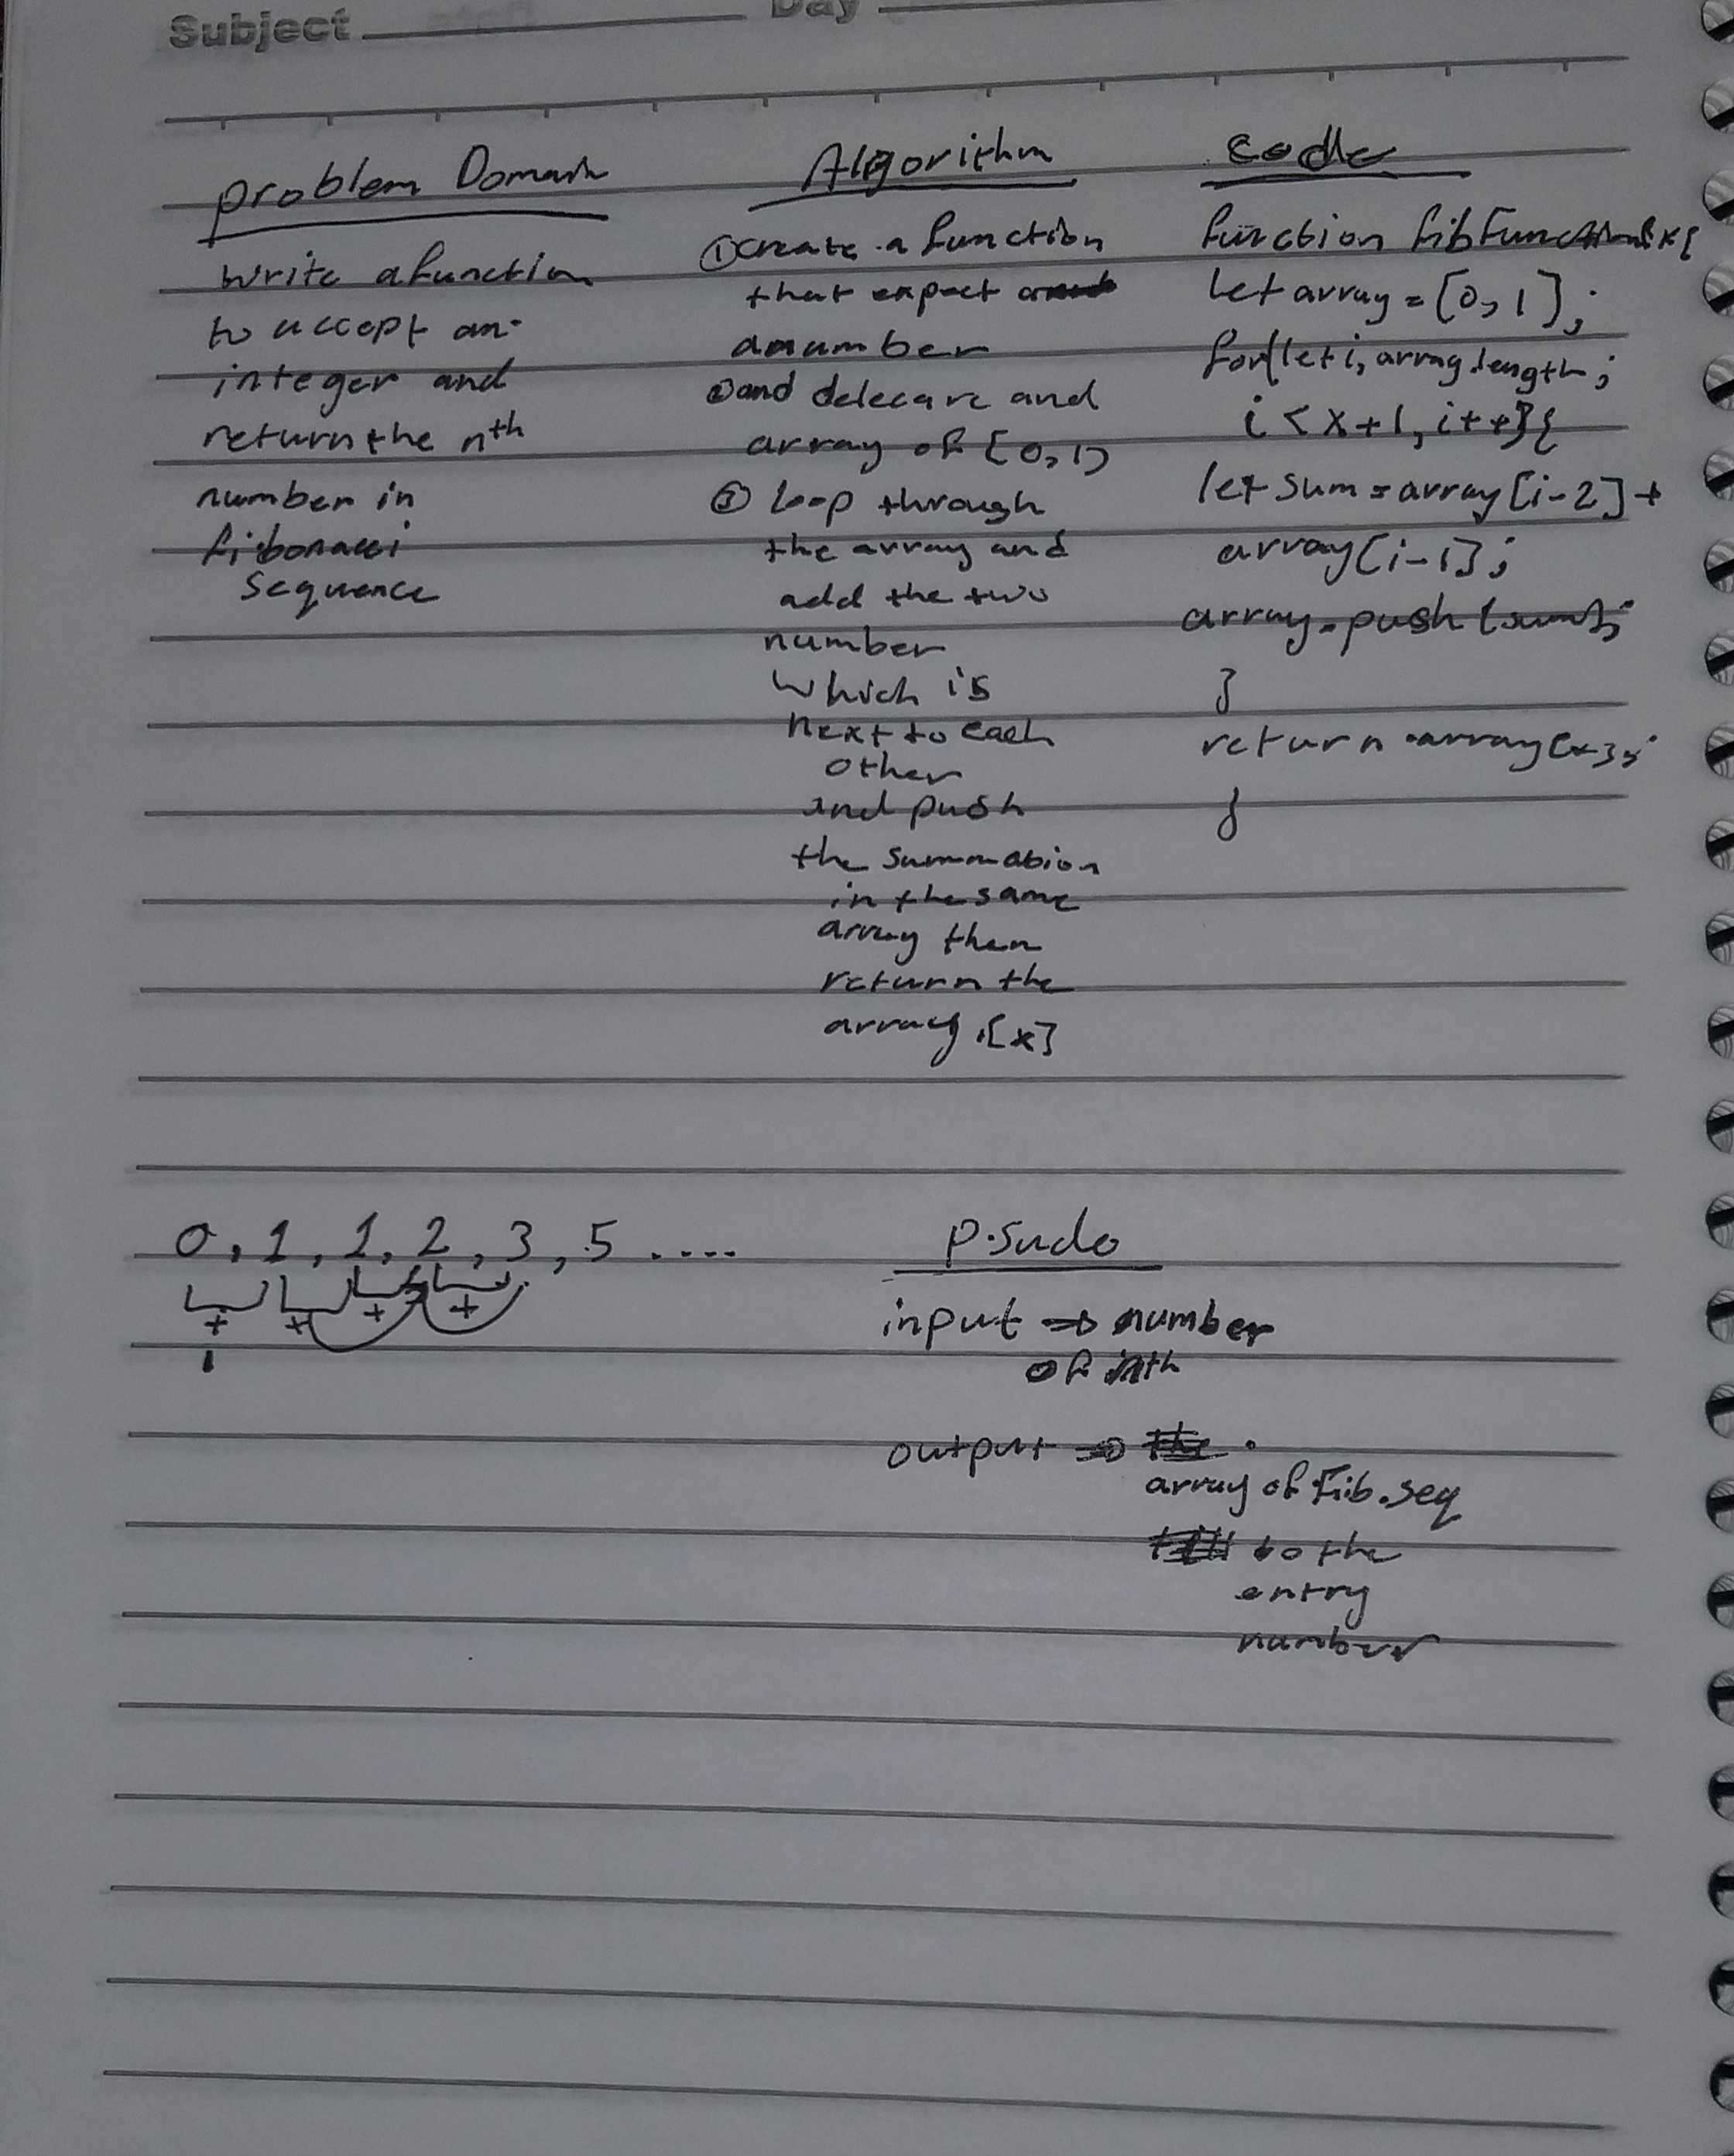 Subject
Day
problem Domain
write a function
to accept an
integer and
return the nth
number in
fibonacci
sequence
Algorithm
① create a function
that expect
a number
② and delecare and
array of [0,1]
③ loop through
the array and
add the two
number
which is
next to each
other
and push
the summation
in the same
array then
return the
array.[x]
code
function fibFunction
let array = [0, 1];
for(let i, array.length;
i < x+1, i++){
let sum = array[i-2] +
array[i-1];
array.push(sum);
}
return array[x];
}
0, 1, 1, 2, 3, 5 ....
+ + + +
1
P.sudo
input => number
of nth
output =>
array of Fib.seq
to the
entry
number